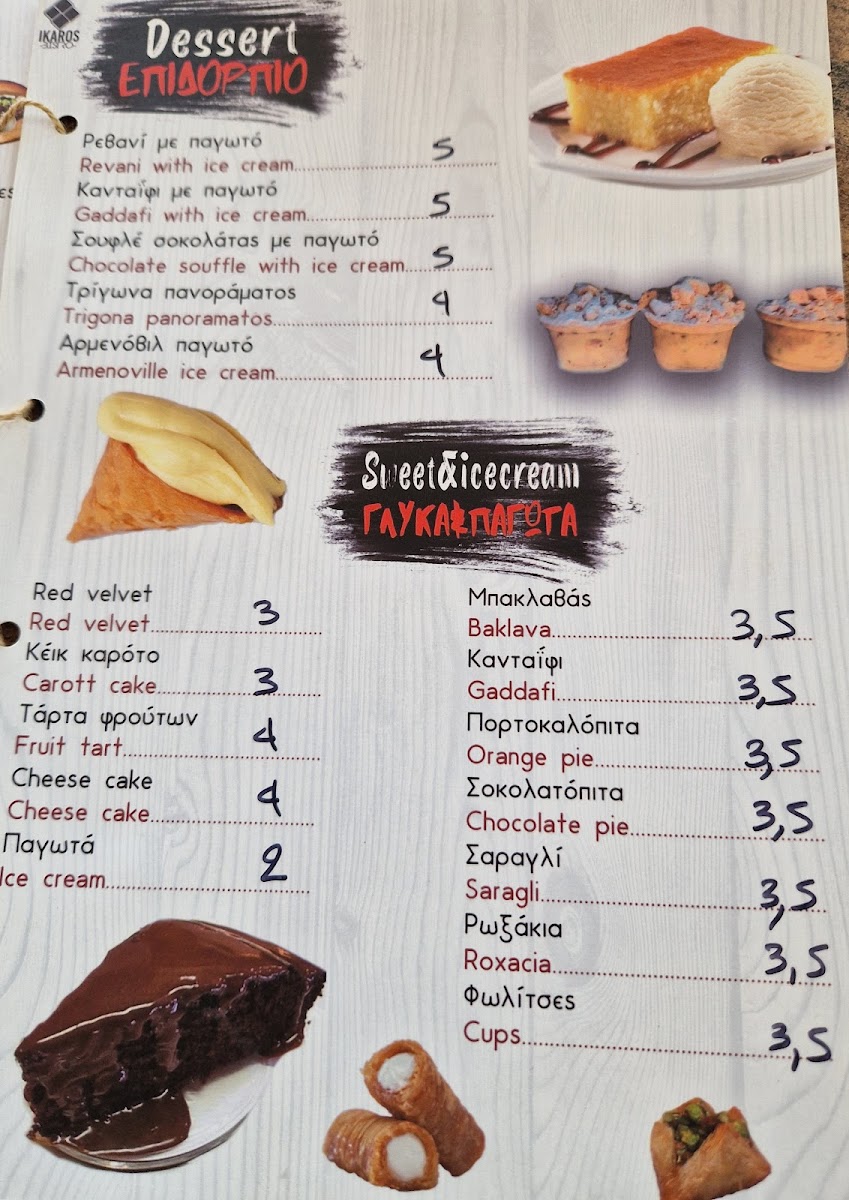 IKAROS
BISTRO
Dessert
ΕΠΙΔΟΡΠΙΟ
Ρεβανί με παγωτό
Revani with ice cream 5
Κανταΐφι με παγωτό
Gaddafi with ice cream 5
Σουφλέ σοκολάτας με παγωτό
Chocolate souffle with ice cream 5
Τρίγωνα πανοράματος
Trigona panoramatos 4
Αρμενόβιλ παγωτό
Armenoville ice cream 4
Sweet&icecream
ΓΛΥΚΑ&ΠΑΓΩΤΑ
Red velvet
Red velvet 3
Κέικ καρότο
Carott cake 3
Τάρτα φρούτων
Fruit tart 4
Cheese cake
Cheese cake 4
Παγωτά
Ice cream 2
Μπακλαβάς
Baklava 3,5
Κανταΐφι
Gaddafi 3,5
Πορτοκαλόπιτα
Orange pie 3,5
Σοκολατόπιτα
Chocolate pie 3,5
Σαραγλί
Saragli 3,5
Ρωξάκια
Roxacia 3,5
Φωλίτσες
Cups 3,5